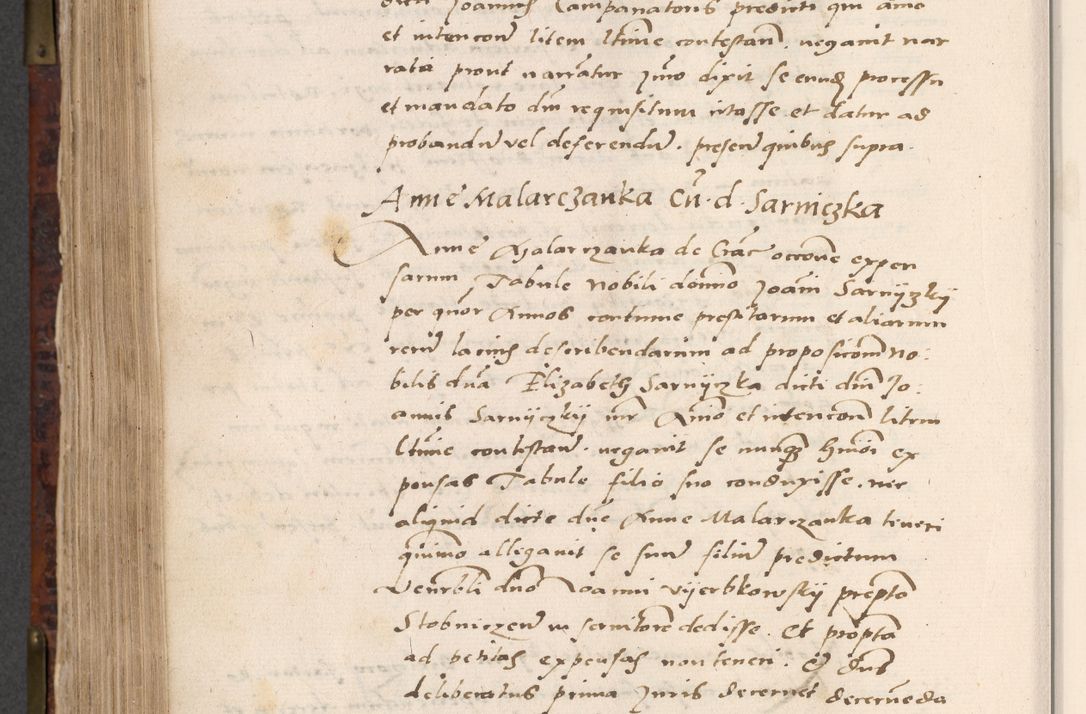 dicti Joannis Campanatoris predicti qui animo
et intencone litem ltime contestan. negavit nar
rata prout narratur Jmo dixit se eundem processu
et mandato dni requisitum citasse et datur ad
probandu vel deferendu. presen quibus supra.
Anne Malarczanka Cu. d. Sarniczka
Anne Malarczanka de Crac occone expen
sarum, Tabule Nobili domino Joani Sarnyczky
per quor Annos contine presitarum et aliarum
reru lacius describendarum ad proposicom no:
bilis dna Elizabeth Sarnyczka dicti dni Jo:
annis Sarnyczky mr Animo et intencom litem
ltime contestan. negavit se nunq hmoi ex
pensas Tabule filio suo conduxisse. nec
aliquid dicte dne Anne Malarczanka teneri
quimo allegavit se suum filiu predictum
Venerbli dno Joanni vyerbkowsky prepto
Stobnicen in servitore dedisse. Et propta
ad petitas expensas non teneri. Et dns
deliberatus prima Juris decernet decernenda